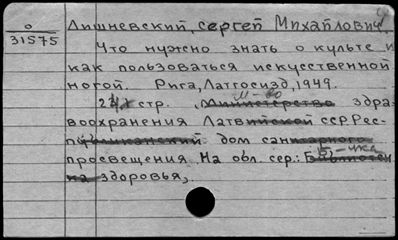 0
31575
Лишневский, Сергей Михайлович
Что нужно знать о культе и
как пользоваться искусственной
ногой. Рига, Латгосизд, 1949.
11-60
24 стр. (Министерство здра-
воохранения Латвийской ССР Рес-
публиканский дом санитарного
просвещения На обл. сер.: Библиотеч
Б-чка
ка здоровья).